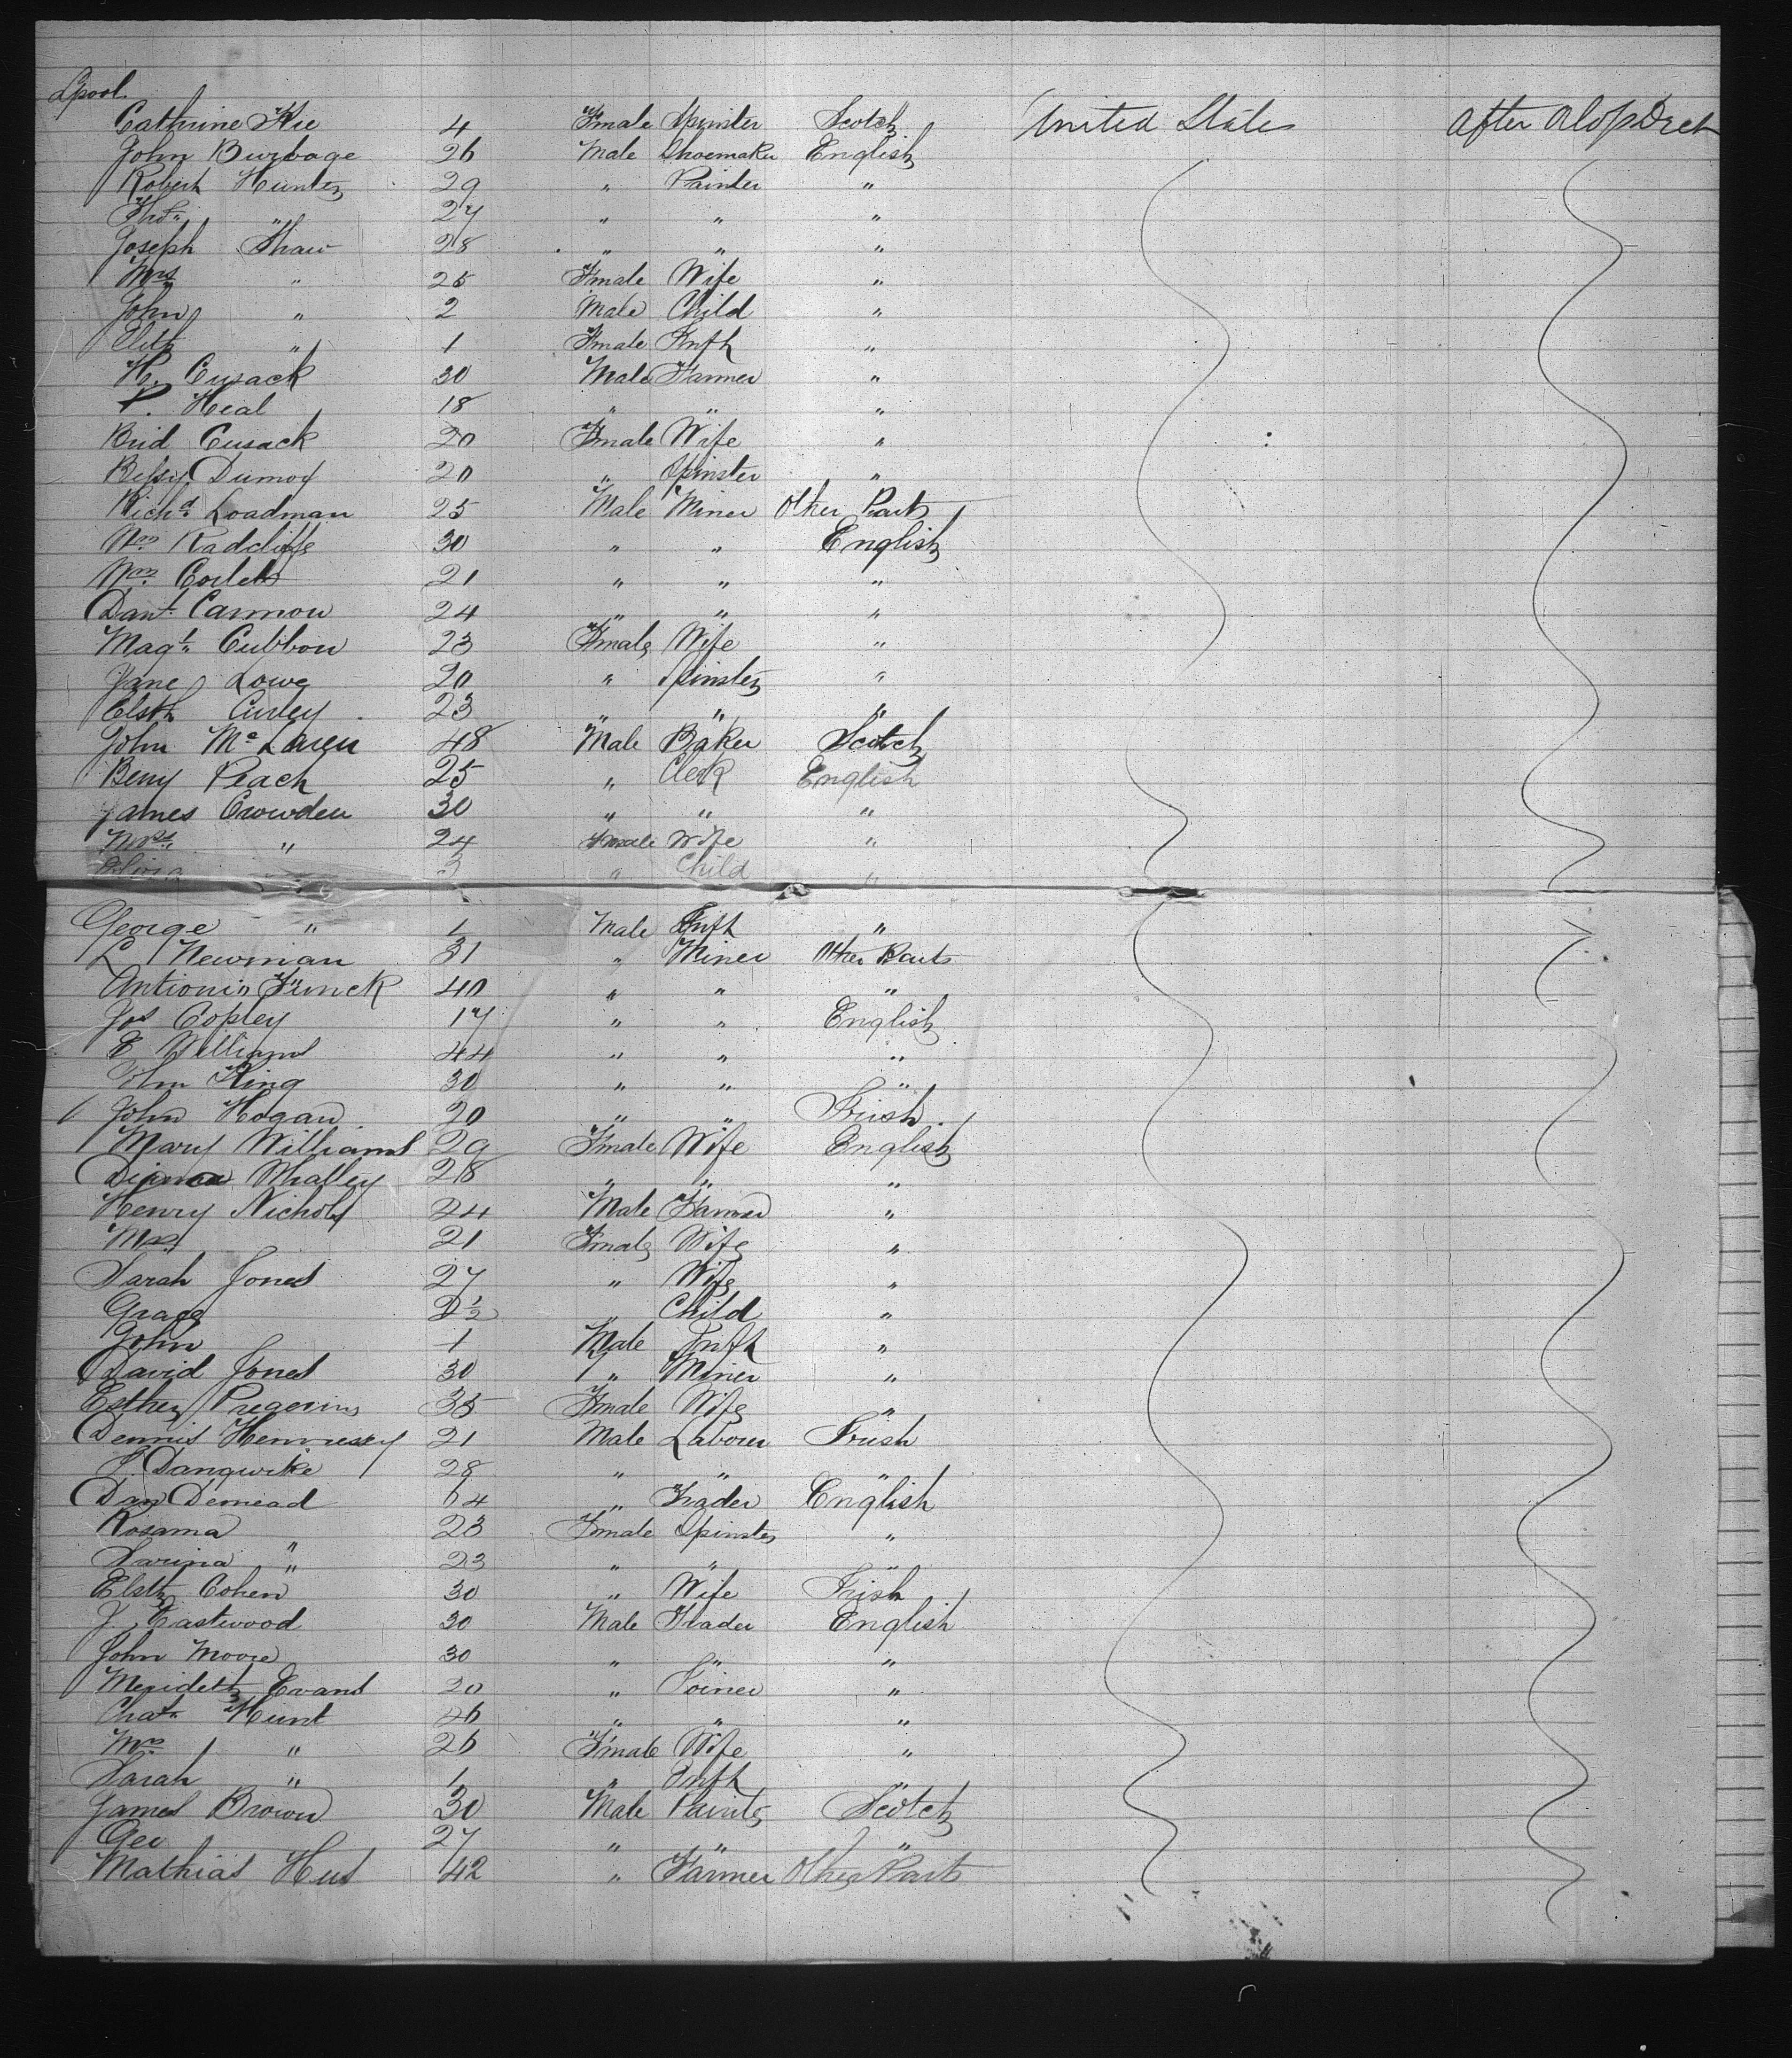 Lpool
Cathrine Kie 4 Fmale Spinster Scotch United States after Alop Deck
John Burbage 26 Male Shoemaker English
Robert Hunter 29 " Painter "
Thos " 27 " " "
Joseph Shaw 28 " " "
Mrs " 25 Fmale Wife "
John " 2 Male Child "
Elith " 1 Fmale Infh "
H. Cusack 30 Male Farmer "
P. Heal 18 " " "
Brid Cusack 20 Fmale Wife "
Betsey Dumoy 20 " Spinster "
Richd Loadman 25 Male Miner Other Parts
Wm Radcliffe 30 " " English
Wm Corlett 21 " " "
Danl Cannon 24 " " "
Magt Cubbon 23 Fmale Wife "
Jane Lowe 20 " Spinster "
Elsth Curley 23 " " "
John Mc Laren 48 Male Baker Scotch
Benj Peach 25 " Clerk English
James Crowden 30 " " "
Mrs " 24 Fmale Wife "
3 " Child "
George " 1 Male Infh "
L Newman 31 " Miner Other Parts
Antionio Funck 40 " " "
Jos Copley 17 " " English
E Williams 44 " " "
John King 30 " " "
John Hogan 20 " " Irish
Mary Williams 29 Fmale Wife English
Diana Whalley 28 " " "
Henry Nichols 24 Male Farmer "
Mrs 21 Fmale Wife "
Sarah Jones 27 " Wife "
Grace 2½ " Child "
John 1 Male Infh "
David Jones 30 " Miner "
Esther 35 Fmale Wife "
Dennis Hennesey 21 Male Labourer Irish
28 " " "
Dan Demead 64 " Trader English
Rosanna " 23 Fmale Spinster "
Sarina " 23 " " "
Elsth Cohen 30 " Wife Irish
J Eastwood 30 Male Trader English
John Moore 30 " " "
Merideth Evans 20 " Joiner "
Chas Hunt 26 " " "
Mrs " 26 Fmale Wife "
Sarah " 1 " Infh "
James Brown 30 Male Painter Scotch
Geo 27 " " "
Mathias Hus 42 " Farmer Other Parts